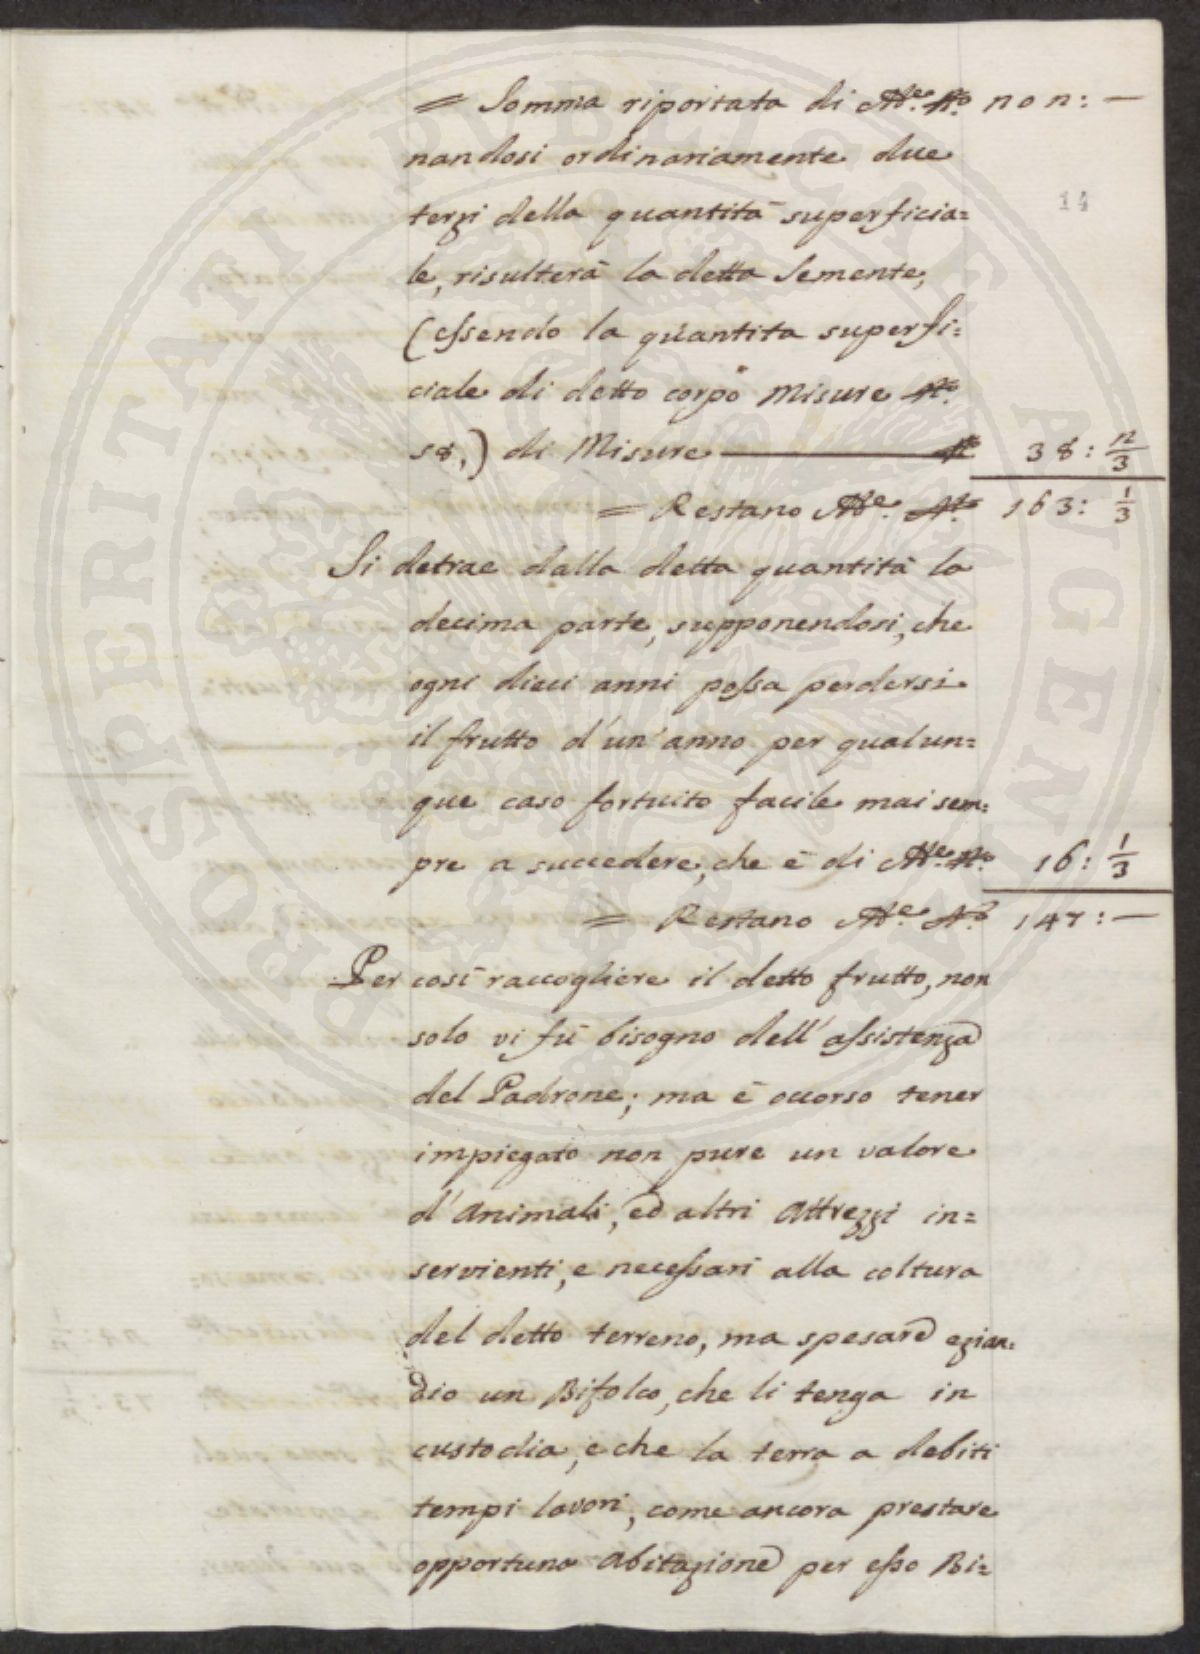 = Somma riportata di Me. No. 202: —
nandosi ordinariamente due
terzi della quantità superficia=
14
le, risulterà la detta Semente,
(essendo la quantita superfi=
ciale di detto corpo Misure No.
58,) di Misure — No. 38: 2/3
= Restano Me. No. 163: 1/3
Si detrae dalla detta quantità la
decima parte, supponendosi, che
ogni dieci anni possa perdersi
il frutto d'un'anno per qualun=
que caso fortuito facile mai sem=
pre a succedere, che è di Me. No. 16: 1/3
= Restano Me. No. 147: —
Per così raccogliere il detto frutto, non
solo vi fù bisogno dell'assistenza
del Padrone; ma è occorso tener
impiegato non pure un valore
d'Animali, ed altri Attrezzi in=
servienti, e necessari alla coltura
del detto terreno, ma spesare ezian=
dio un Bifolco, che li tenga in
custodia, e che la terra a debiti
tempi lavori, come ancora prestare
opportuna Abitazione per esso Bi=
PROSPERITATI PUBLICAE AUGENDAE